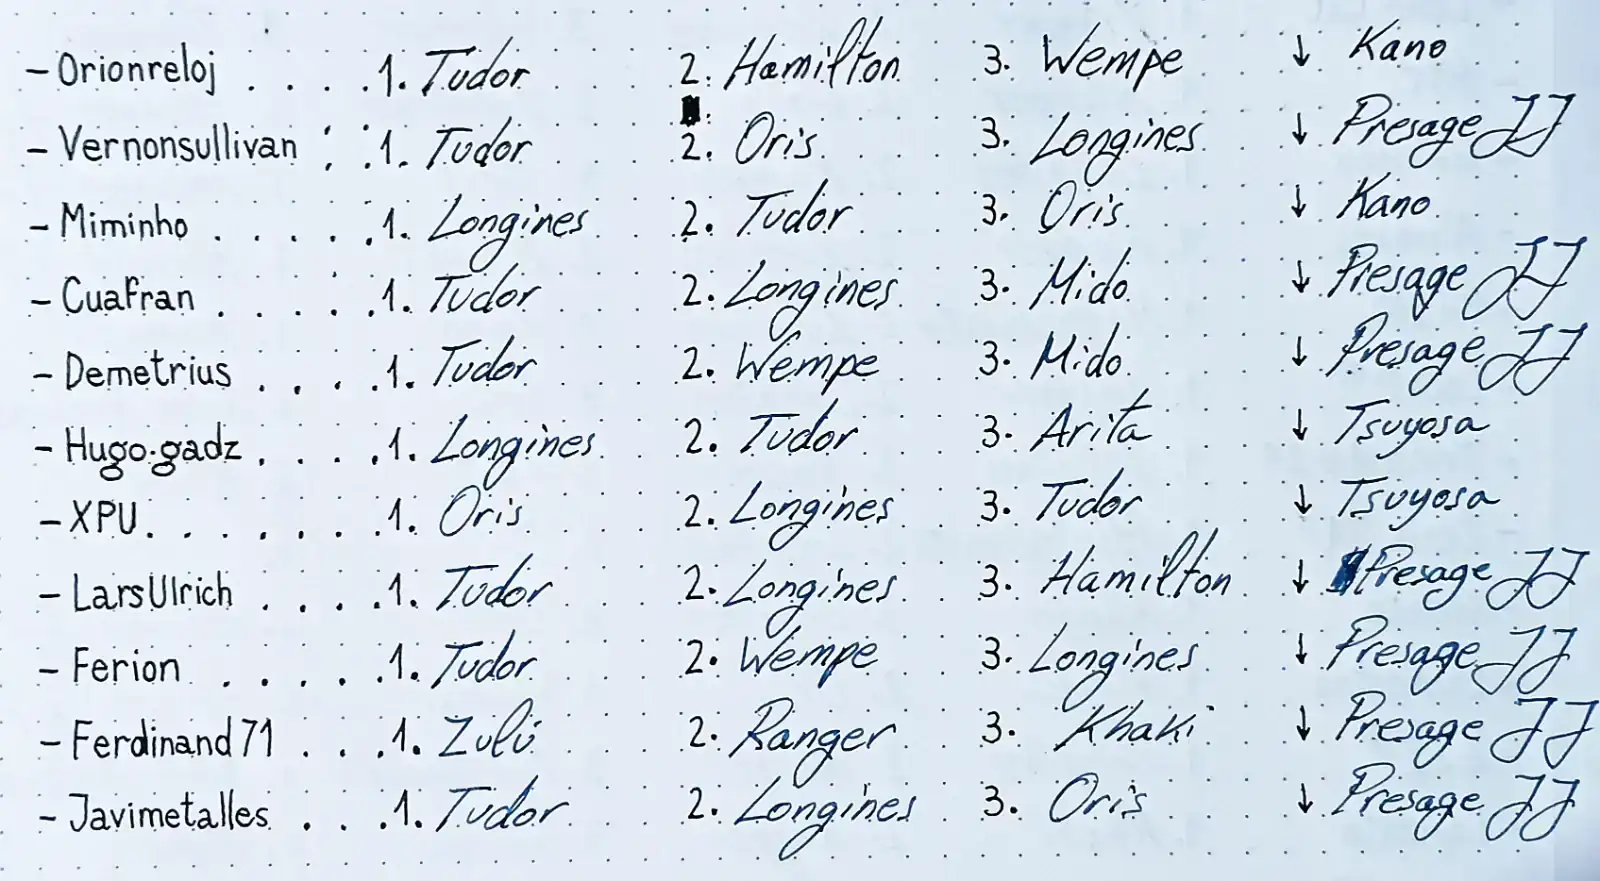 - Orionreloj . . . . 1. Tudor 2. Hamilton 3. Wempe ↓ Kano
- Vernonsullivan . . 1. Tudor 2. Oris 3. Longines ↓ Presage JJ
- Miminho . . . . . 1. Longines 2. Tudor 3. Oris ↓ Kano
- Cuafran . . . . . 1. Tudor 2. Longines 3. Mido ↓ Presage JJ
- Demetrius . . . . 1. Tudor 2. Wempe 3. Mido ↓ Presage JJ
- Hugo.gadz . . . . 1. Longines 2. Tudor 3. Arita ↓ Tsuyosa
- XPU . . . . . . . 1. Oris 2. Longines 3. Tudor ↓ Tsuyosa
- LarsUlrich . . . . 1. Tudor 2. Longines 3. Hamilton ↓ Presage JJ
- Ferion . . . . . 1. Tudor 2. Wempe 3. Longines ↓ Presage JJ
- Ferdinand71 . . . 1. Zulú 2. Ranger 3. Khaki ↓ Presage JJ
- Javimetalles . . . 1. Tudor 2. Longines 3. Oris ↓ Presage JJ